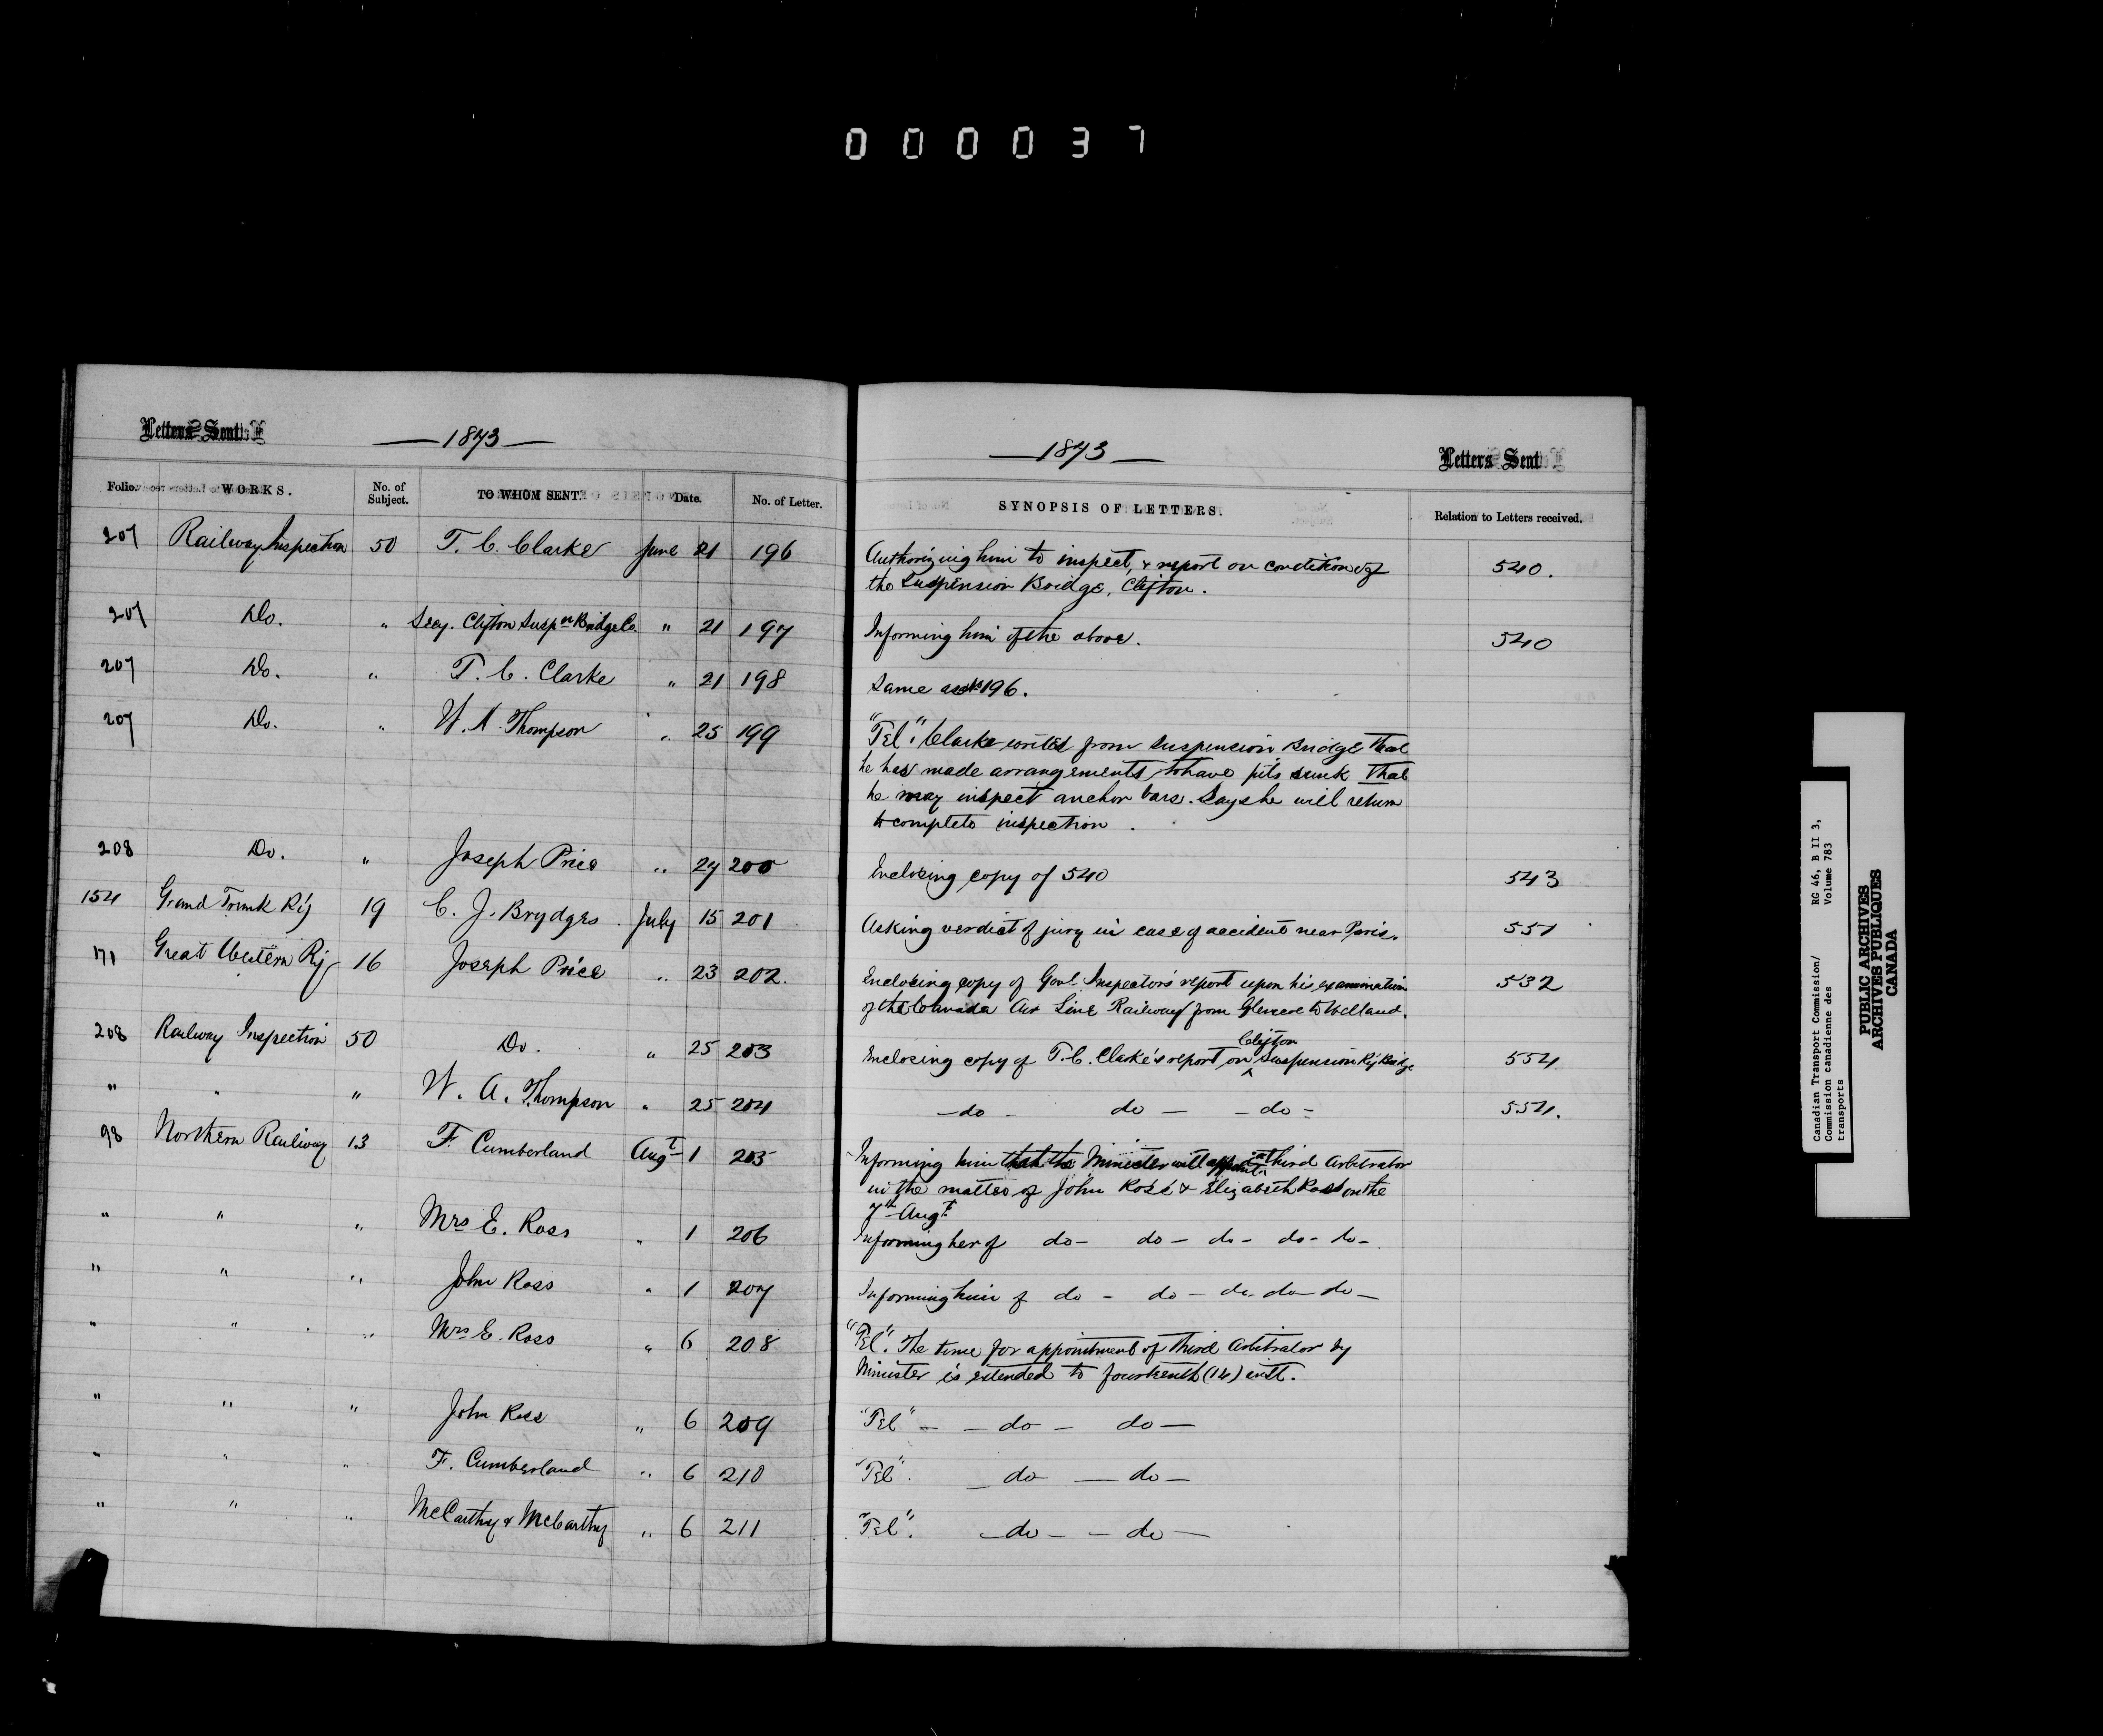 000037
Letters Sent
1873
Folio. WORKS. No. of Subject. TO WHOM SENT. Date. No. of Letter.
207 Railway Inspection 50 T. C. Clarke June 21 196
207 Do. " Secy. Clifton Suspn Bridge Co. " 21 197
207 Do. " T. C. Clarke " 21 198
207 Do. " W. A. Thompson " 25 199
208 Do. " Joseph Price " 27 200
154 Grand Trunk Ry 19 C. J. Brydges July 15 201
171 Great Western Ry 16 Joseph Price " 23 202.
208 Railway Inspection 50 Do. " 25 203
" " " W. A. Thompson " 25 204
98 Northern Railway 13 F. Cumberland Augt 1 205
" " " Mrs E. Ross " 1 206
" " " John Ross " 1 207
" " " Mrs E. Ross " 6 208
" " " John Ross " 6 209
" " " F. Cumberland " 6 210
" " " McCarthy & McCarthy " 6 211
1873
Letters Sent
SYNOPSIS OF LETTERS. Relation to Letters received.
Authorizing him to inspect, & report on condition of 540.
the Suspension Bridge, Clifton.
Informing him of the above. 540
Same as 196.
"Tel". Clarke writes from Suspencion Bridge that
he has made arrangements to have pits sunk that
he may inspect anchor bars. Says he will return
to complete inspection.
Enclosing copy of 540 543
Asking verdict of jury in case of accident near Paris. 551
Enclosing copy of Govt. Inspector's report upon his examination 532
of the Canada Air Line Railway from Glencoe to Welland.
Clifton
Enclosing copy of T. C. Clarke's report on ^ Suspension Ry Bridge 554
- do - do - - do - 554.
Informing him that the Minister will appoint third Arbitrator
in the matter of John Ross & Elizabeth Ross on the
7th Augt
Informing her of do - do - do - do - do -
Informing him of do - do - do - do - do -
"Tel". The time for appointment of third Arbitrator by
Minister is extended to fourteenth (14) inst.
"Tel" - - do - do -
"Tel". - do - do -
"Tel". - do - - do -
Canadian Transport Commission/
Commission canadienne des
transports
RG 46, B II 3,
Volume 783
PUBLIC ARCHIVES
ARCHIVES PUBLIQUES
CANADA